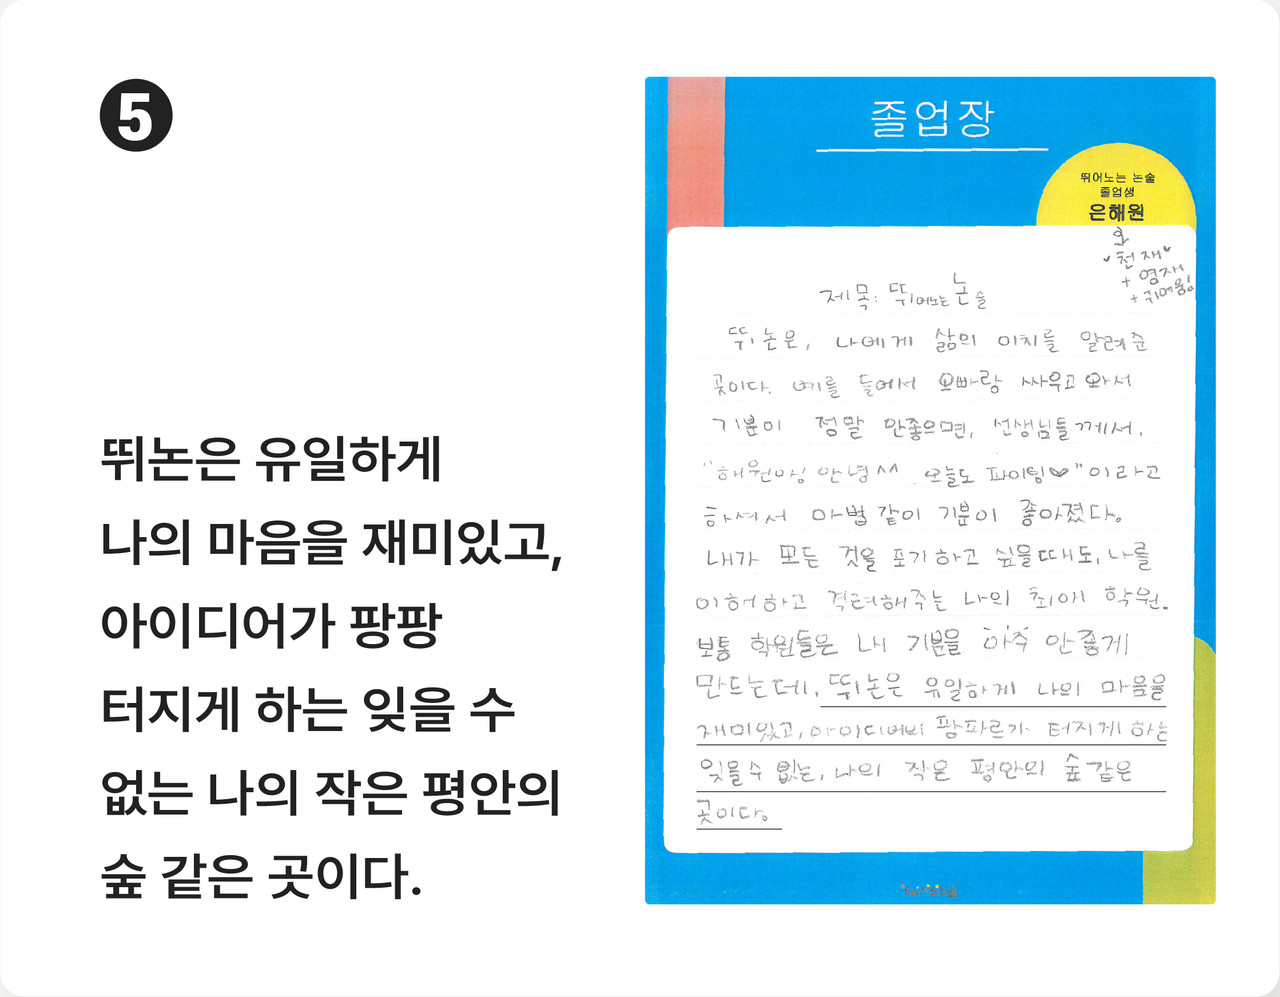 5
뛰논은 유일하게
나의 마음을 재미있고,
아이디어가 팡팡
터지게 하는 잊을 수
없는 나의 작은 평안의
숲 같은 곳이다.
졸업장
뛰어노는 논술
졸업생
은해원
천재
+ 영재
+ 귀여움
제목: 뛰어노는 논술
뛰논은, 나에게 삶의 이치를 알려준
곳이다. 예를 들어서 오빠랑 싸우고 와서
기분이 정말 안좋으면, 선생님들께서,
"해원아 안녕^^ 오늘도 파이팅♥"이라고
하셔서 마법같이 기분이 좋아졌다.
내가 모든 것을 포기하고 싶을때도, 나를
이해하고 격려해주는 나의 최애 학원.
보통 학원들은 내 기분을 아주 안좋게
만드는데, 뛰논은 유일하게 나의 마음을
재미있고, 아이디어비 팡파르가 터지게 하는
잊을수 없는, 나의 작은 평안의 숲같은
곳이다.